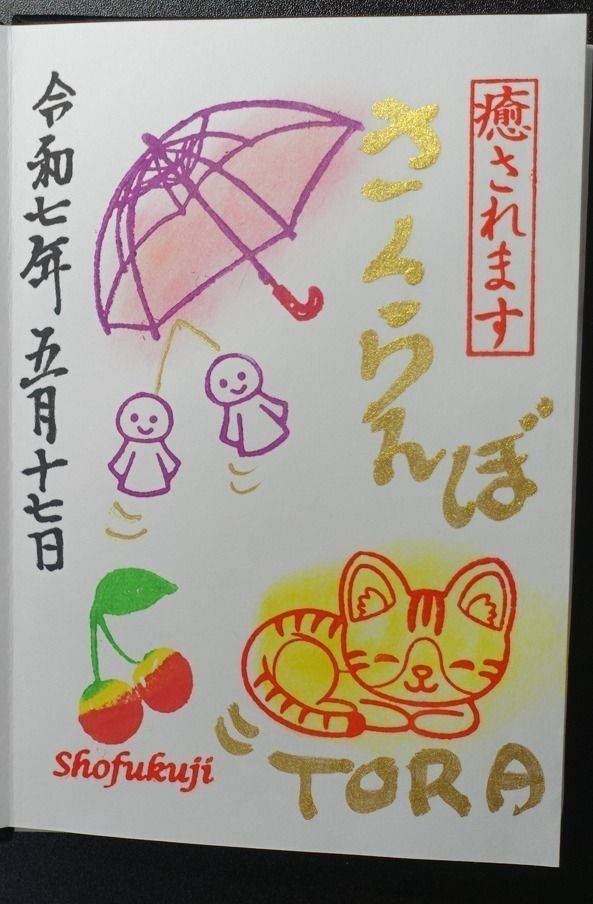 癒されます
さくらんぼ
令和七年五月十七日
Shofukuji
TORA